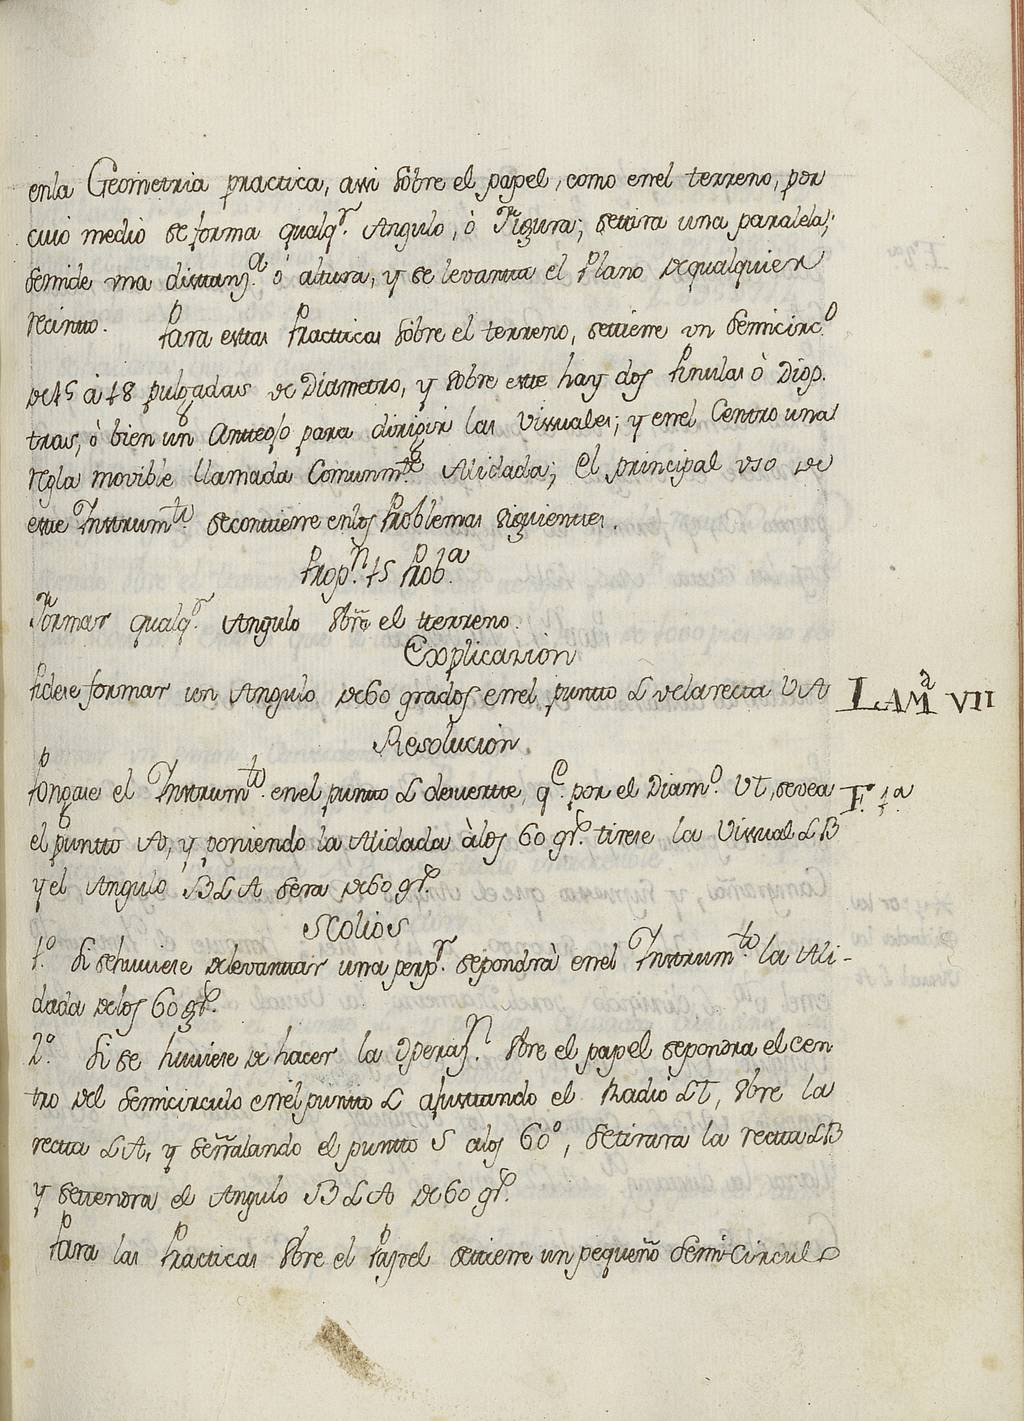 enla Geometria practica, assi sobre el papel, como enel terreno, por
cuio medio se forma qualqr. Angulo, ò Figura; setira una paralela;
semide una distanza. ò altura, y se levanta el Plano de qualquier
recinto. Para estas Practicas sobre el terreno, setiene un Semicirco.
de 15 à 18 pulgadas de Diametro, y sobre este hay dos Pinulas ò Diop.
tras, ò bien un Anteojo para dirigir las Vissuales; y enel Centro una
regla movible llamada Comunmte. Alidada; el principal uso de
este Instrumto. secontiene enlos Problemas siguientes.
Propn. 15 Proba.
Formar qualqr. Angulo sbre el terreno.
Explicazion
Pidese formar un Angulo de 60 grados enel punto L dela recta VA
LAMa. VII
Resolucion.
Pongase el Instrumto. enel punto L desuerte, qe. por el Diamo. VT, sevea
F. 1a.
el punto A, y poniendo la Alidada àlos 60 grs. tirese la Vissual LB
y el Angulo BLA sera de 60 grs.
Scolios
1o. Si sehuviese delevantar una perpr. sepondrà enel Instrumto. la Ali-
dada delos 60 grs.
2o. Si se huviese de hacer la Operazn. sbre el papel sepondra el cen
tro del Semicirculo enel punto L ajustando el Radio LT, sbre la
recta LA, y señalando el punto S alos 60o, setirara la recta LB
y setendra el Angulo BLA de 60 grs.
Para las Practicas sbre el Papel setiene un pequeño Semi-Circulo